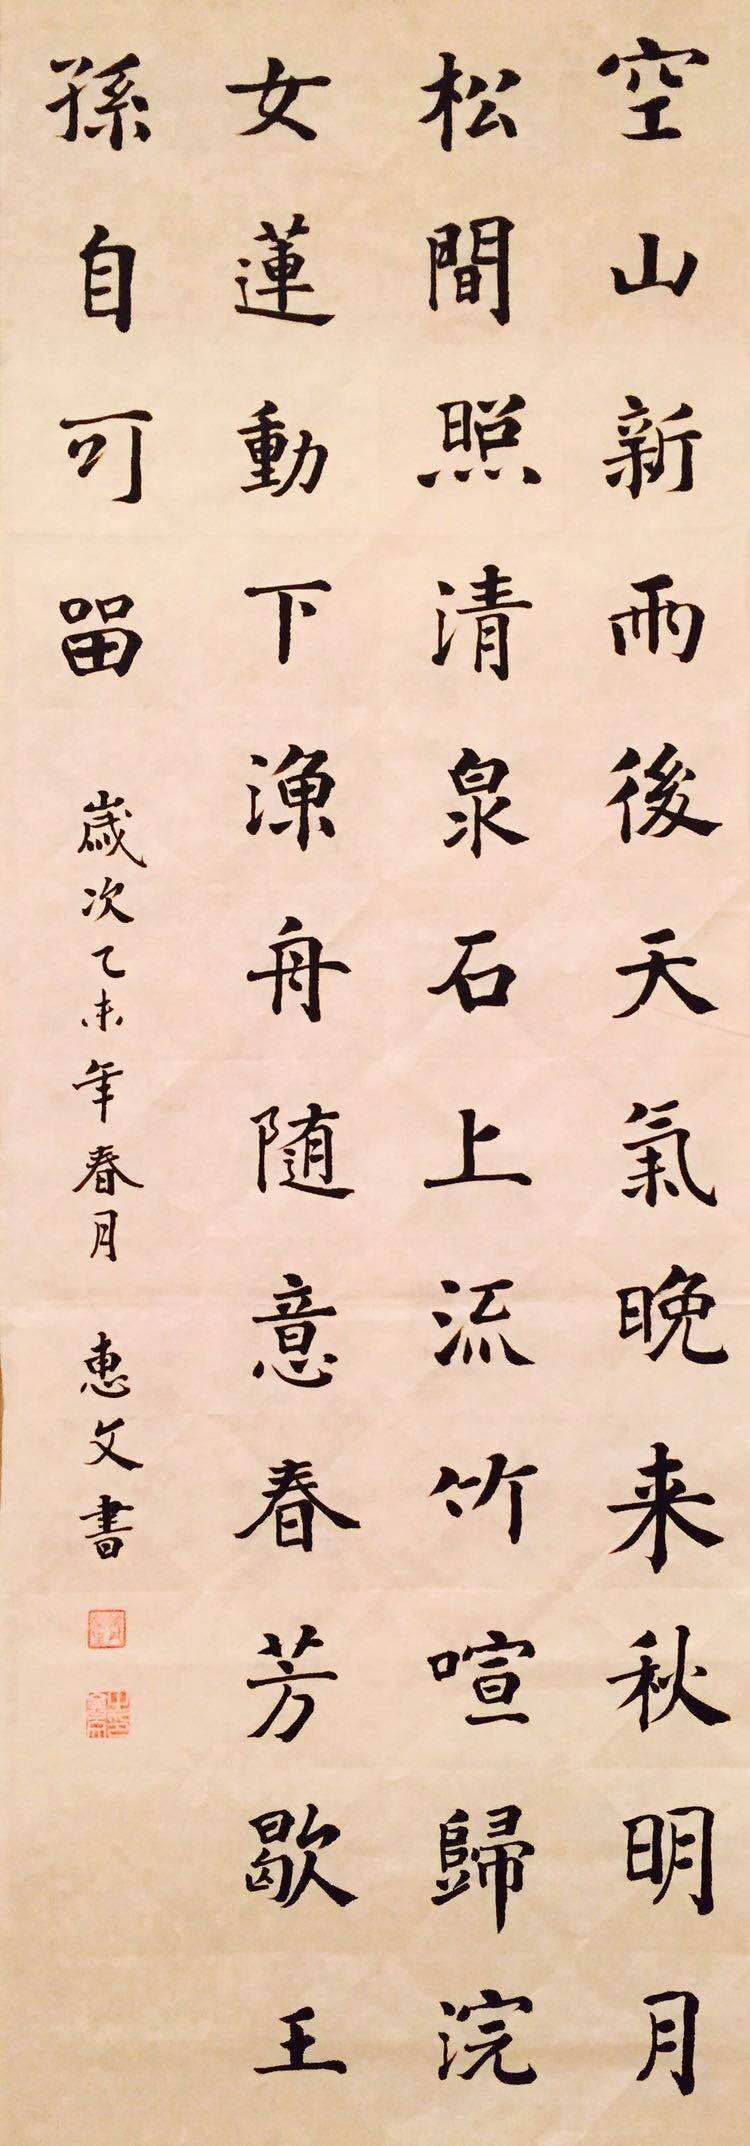 空山新雨後天氣晚来秋明月
松間照清泉石上流竹喧歸浣
女蓮動下漁舟随意春芳歇王
孫自可留
歲次乙未年春月 惠文書